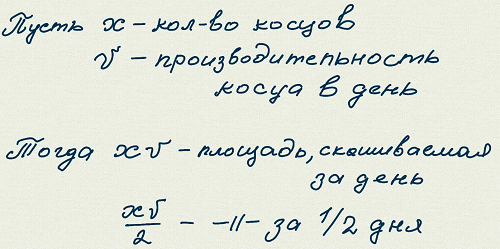 Пусть x – кол-во косцов
v – производительность
косца в день
Тогда xv – площадь, скашиваемая
за день
xv/2 – –||– за 1/2 дня